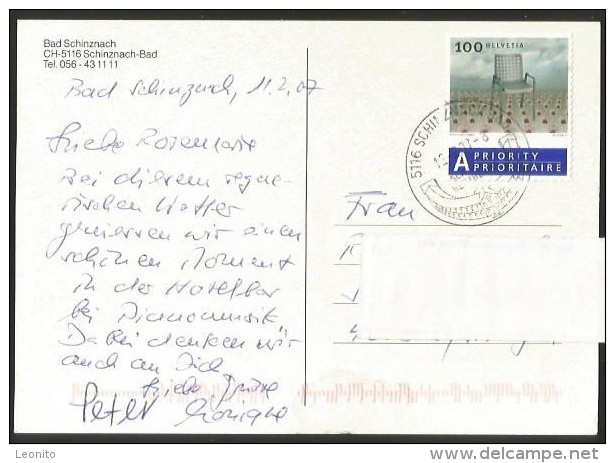 Bad Schinznach
CH-5116 Schinznach-Bad
Tel. 056 - 43 11 11
100 HELVETIA
A PRIORITY
PRIORITAIRE
5116 SCHINZ
Bad Schinznach, 11.2.07
Liebe Rosemarie
Bei diesem regne-
rischen Wetter
geniessen wir einen
schönen Moment
in der Hotelbar
bei Pianomusik.
Dabei denken wir
auch an Dich
Liebe Grüsse
Peter Monique
Frau
www.delcampe.net
Leonito